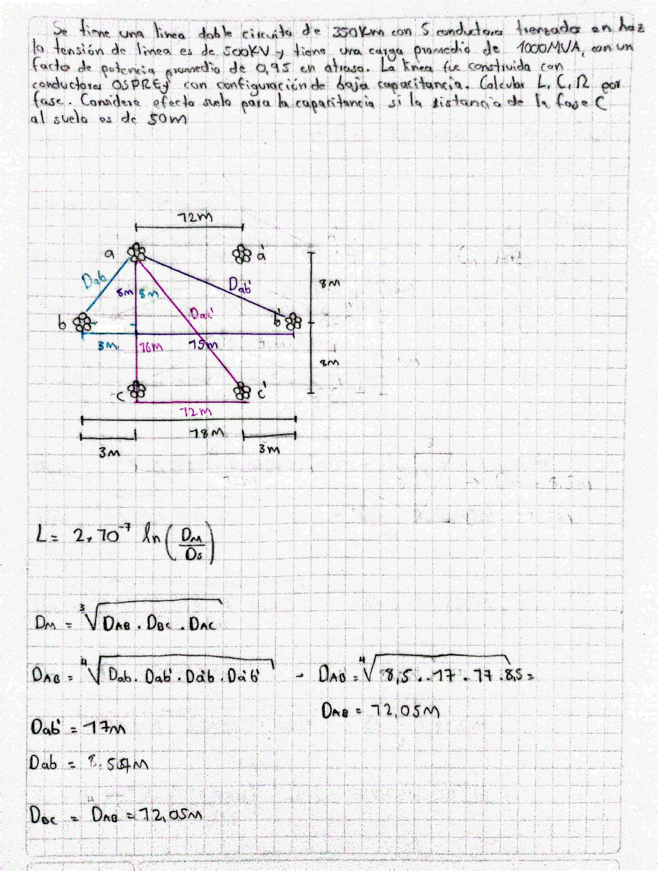 Se tiene una linea doble circuito de 350Km con 5 conductores trenzados en haz
la tensión de linea es de 500KV y tiene una carga promedio de 1000MVA, con un
factor de potencia promedio de 0,95 en atraso. La linea fue construida con
conductores OSPREY con configuración de baja capacitancia. Calcular L, C, R por
fase. Considere efecto suelo para la capacitancia si la distancia de la fase C
al suelo es de 50m
12M
a
a'
Dab
Dab'
8M
8M
8M
Dac'
b
b'
3M
16M
15M
8M
c
c'
12M
18M
3M
3M
L = 2.10⁻⁷ ln(DM/Ds)
DM = ³√DAB . DBC . DAC
DAB = ⁴√Dab . Dab' . Da'b . Da'b' - DAB = ⁴√8,5 . 17 . 17 . 8,5 =
DAB = 12,05M
Dab' = 17M
Dab = 8.54M
DBC = DAB = 12,05M